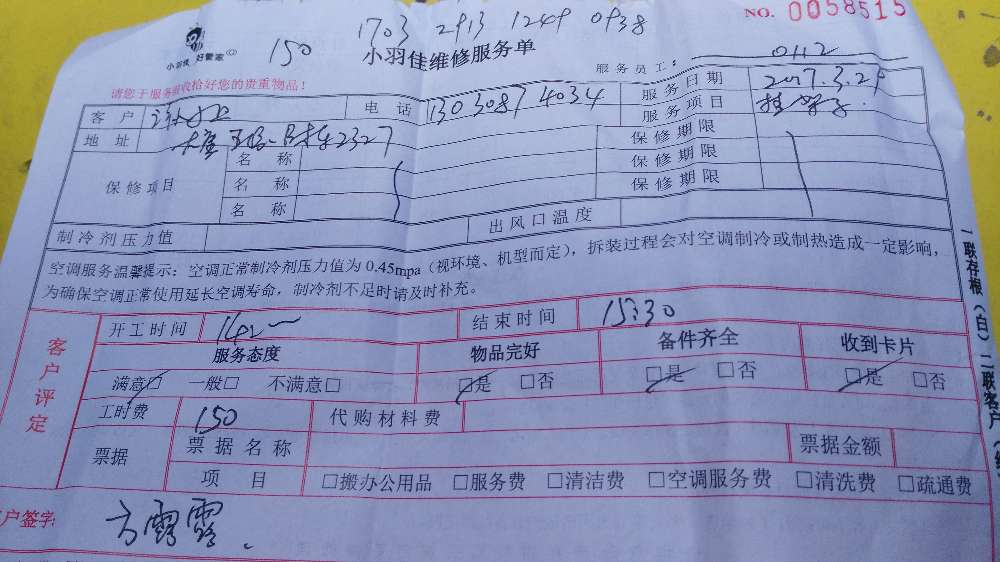 1703 2913 1249 0938
NO. 0058515
小羽佳 好管家
150
小羽佳维修服务单
服务员工: 0112
请您于服务前收拾好您的贵重物品!
客户 电话 13030874034 服务日期 2017.3.29
服务项目
地址 2327 保修期限
保修项目 名称 保修期限
名称 保修期限
名称
制冷剂压力值 出风口温度
空调服务温馨提示: 空调正常制冷剂压力值为 0.45mpa (视环境、机型而定), 拆装过程会对空调制冷或制热造成一定影响,
为确保空调正常使用延长空调寿命, 制冷剂不足时请及时补充。
客户评定
开工时间 结束时间 15:30
服务态度 物品完好 备件齐全 收到卡片
满意□ 一般□ 不满意□ □是 □否 □是 □否 □是 □否
工时费 150 代购材料费
票据 票据名称 票据金额
项目 □搬办公用品 □服务费 □清洁费 □空调服务费 □清洗费 □疏通费
客户签字: 方露露
一联存根(白) 二联客户(